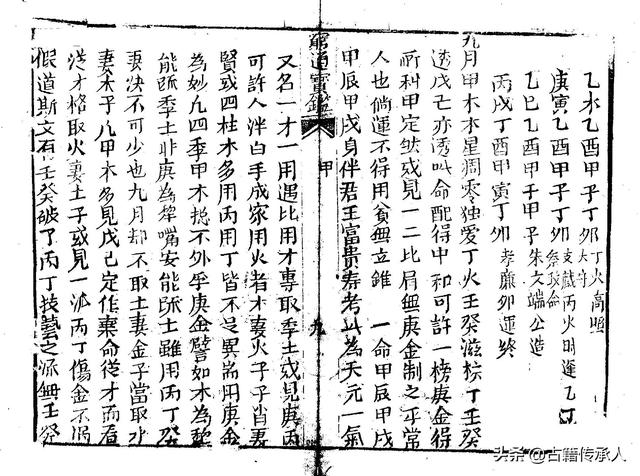 乙未乙酉甲子丁卯 丁火高照 太守
庚寅乙酉甲子丁卯 支藏丙火明運乙丁 祭政命
乙巳乙酉甲子甲子 朱文端公造
丙戌丁酉甲寅丁卯 孝廉卯運終
九月甲木木星凋零独爱丁火壬癸滋棕丁壬癸
透戊己亦透叫命配得中和可許一榜庚金得
所科甲定然或見一二比肩無庚金制之平常
人也倘運不得用貧無立錐 一命甲辰甲戌
甲辰甲戌身伴君王富貴寿考此為天元一氣
窮通寶鑑 甲 九
又名一才一用遇比用才專取季土或見庚丙
可許人泮白手成家用火者木妻火子子肖妻
賢或四柱木多用丙用丁皆不足異崙用庚金
為妙凡四季甲木捴不外乎庚金譬如木為犂
能疏季土非庚為犂嘴安能疏土雖用丙丁癸
妻决不可少也九月却不取土妻金子當取水
妻木子凡甲木多見戊己定作棄命從才而看
從才格取火妻土子或見一派丙丁傷金不過
假道斯文有壬癸破了丙丁技藝之流無壬癸
头条@古籍传承人